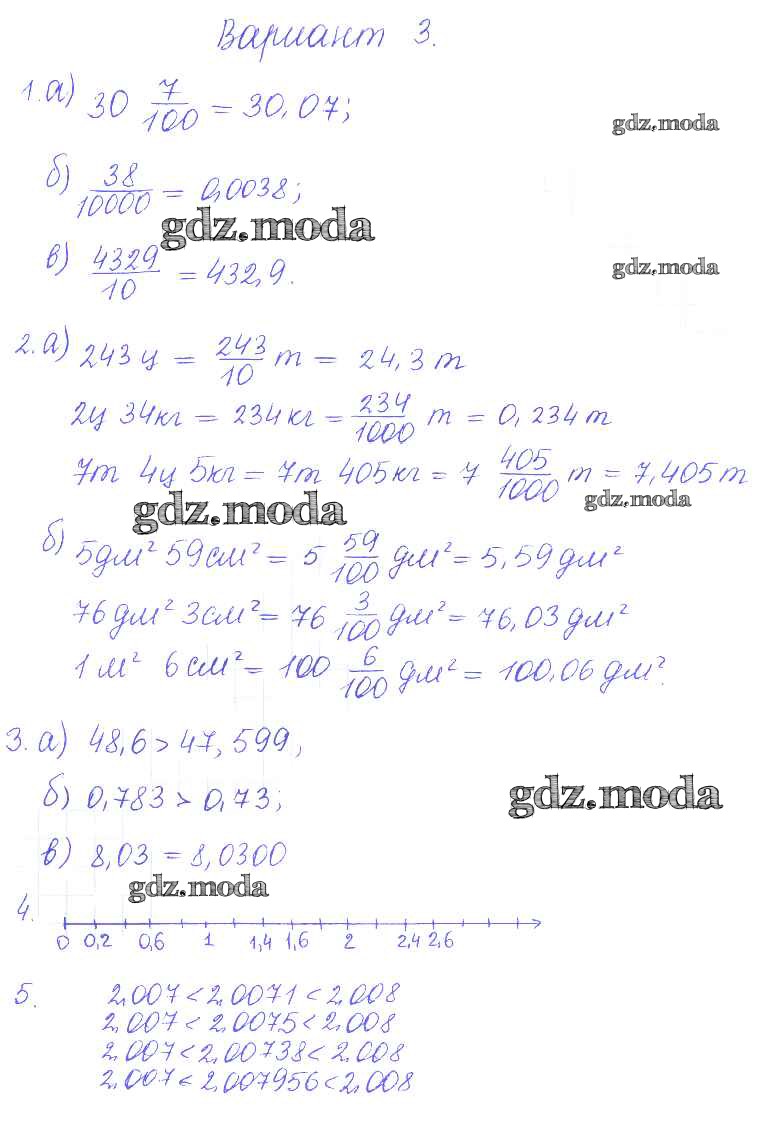 Вариант 3.
1. а) 30 7/100 = 30,07;
gdz.moda
б) 38/10000 = 0,0038;
gdz.moda
в) 4329/10 = 432,9.
gdz.moda
2. а) 243 ц = 243/10 т = 24,3 т
2ц 34кг = 234 кг = 234/1000 т = 0,234 т
7т 4ц 5кг = 7т 405 кг = 7 405/1000 т = 7,405 т
gdz.moda
gdz.moda
б) 5 дм² 59 см² = 5 59/100 дм² = 5,59 дм²
76 дм² 3 см² = 76 3/100 дм² = 76,03 дм²
1 м² 6 см² = 100 6/100 дм² = 100,06 дм².
3. а) 48,6 > 47,599;
б) 0,783 > 0,73;
gdz.moda
в) 8,03 = 8,0300
gdz.moda
4.
0 0,2 0,6 1 1,4 1,6 2 2,4 2,6
5. 2,007 < 2,0071 < 2,008
2,007 < 2,0075 < 2,008
2,007 < 2,00738 < 2.008
2,007 < 2,007956 < 2,008